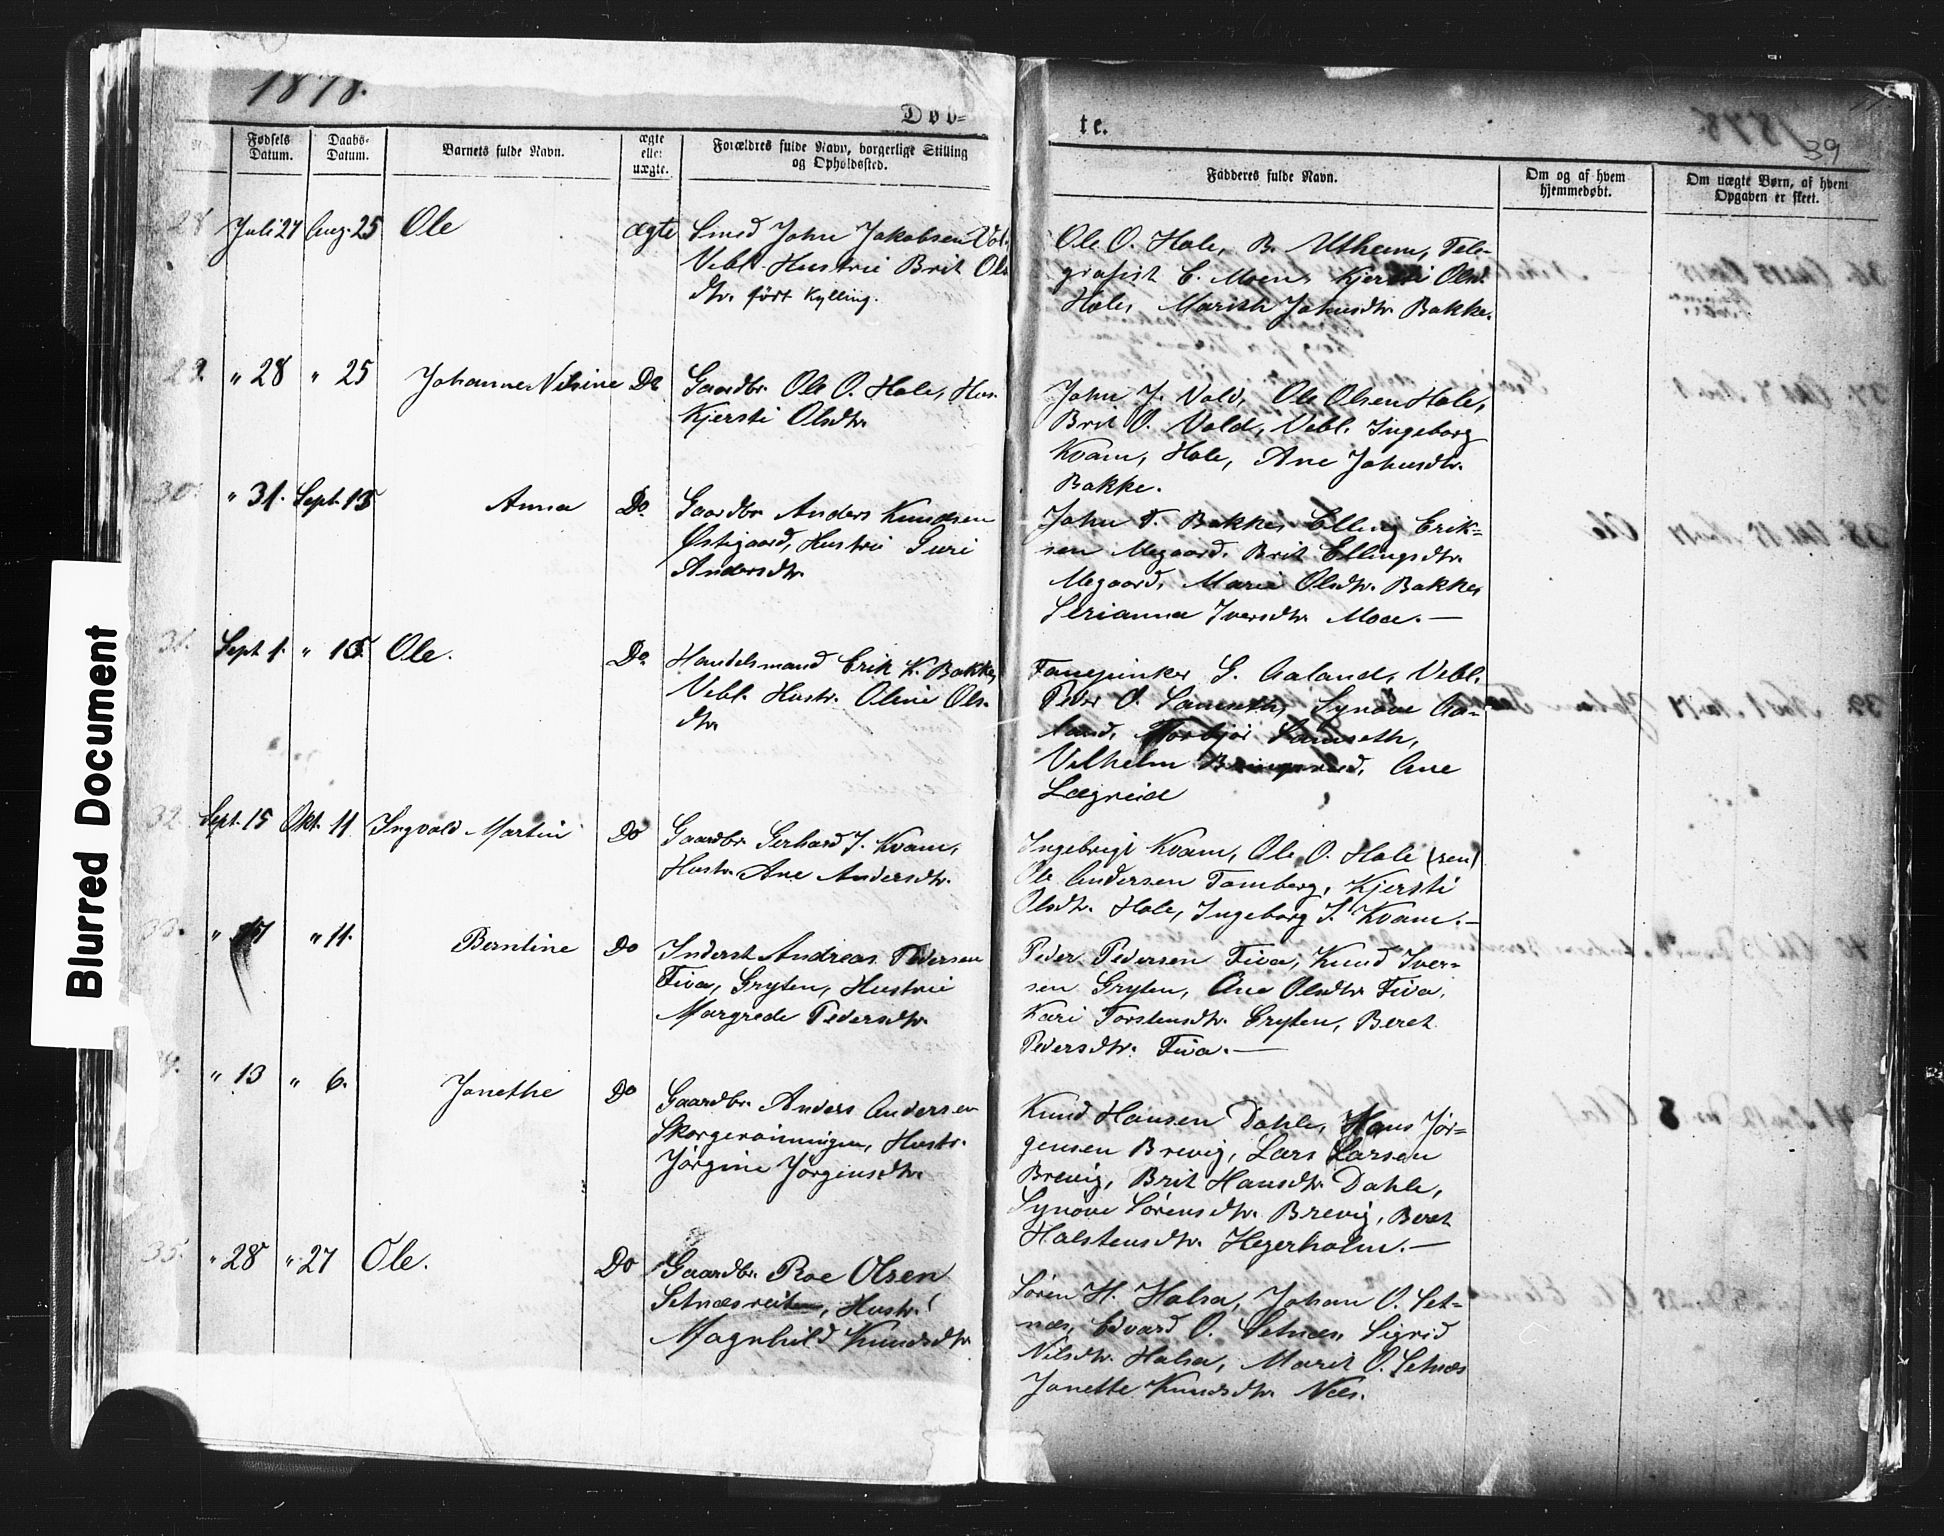 1878.
Døb=
te.
1878.
39
Fødsels Datum.
Daabs-Datum.
Barnets fulde Navn.
ægte eller uægte.
Forældres fulde Navn, borgerlige Stilling og Opholdssted.
Fadderes fulde Navn.
Om og af hvem hjemmedøbt.
Om uægte Børn, af hvem Opgaven er skeet.
28 Juli 27 Aug. 25 Ole ægte
Smed John Jakobsen
Vebl. Hustrue Brit Ols
dtr. født Kylling.
Ole O. Hole, B. Utheim, Tele-
grafist C. Moen, Kjersti Olsd.
Hole, Marith Johnsdtr. Bakke.
29. " 28 " 25 Johanne Nilsine Do
Gaardbr. Ole O. Hole, Hus.
Kjersti Olsdtr.
John J. Vold, Ole Olsen Hole,
Brit O. Vold, Vebl. Ingeborg
Kvam, Hole, Ane Johnsdtr.
Bakke.
30. " 31. Sept. 15 Anna Do.
Gaardbr Anders Knudsen
Østigaard, Hustrue Guri
Andersdtr.
John T. Bakke, Elling Erik=
sen Megaard, Brit Ellingsdtr.
Megaard, Marie Olsdtr. Bakke,
Serianna Iversdtr. Moa. —
31. Sept 1. " 15. Ole. Do
Handelsmand Erik K. Bakke,
Vebl. Hustr. Oline Ols.
dtr.
Fanejunker G. Aaland, Vebl.
Peder O. Samseth, Synøve Aa-
land, Torbjør Samseth,
Vilhelm Ane
Lægreid
32 Sept. 15 Okt. 11 Ingvald Martin Do
Gaardbr Gerhard J. Kvam,
Hustr. Ane Andersdtr.
Ingebrigt Kvam, Ole O. Hole (sen)
Ole Andersen Tomberg, Kjersti
Olsdtr. Hole, Ingeborg J. Kvam. —
33. " 17 " 11. Berntine Do
Inderst Andreas Pedersen
Fiva, Gryten, Hustrue
Margrede Pedersdtr.
Peder Pedersen Fiva, Knud Iver-
sen Gryten, Ane Olsdtr Fiva,
Kari Torstensdtr. Gryten, Beret
Pedersdtr. Fiva. —
34. " 13 " 6. Janethe Do
Gaardbr. Anders Andersen
Skorgerønningen, Hustr.
Jørgine Jørgensdtr.
Knud Hansen Dahle, Hans Jør=
gensen Brevig, Lars Larsen
Brevig, Brit Hansdtr. Dahle,
Synøve Sørensdtr. Brevig, Beret
Halstensdtr. Hegerholm. —
35. " 28 " 27 Ole. Do
Gaardbr. Roe Olsen
Setnæsreiten, Hustr.
Magnhild Knudsdtr
Søren H. Halsa, Johan O. Set=
næs, Edvard O. Setnæs, Sigrid
Nilsdtr. Halsa, Marit O. Setnæs
Janette Knudsdtr. Næs.
Blurred Document